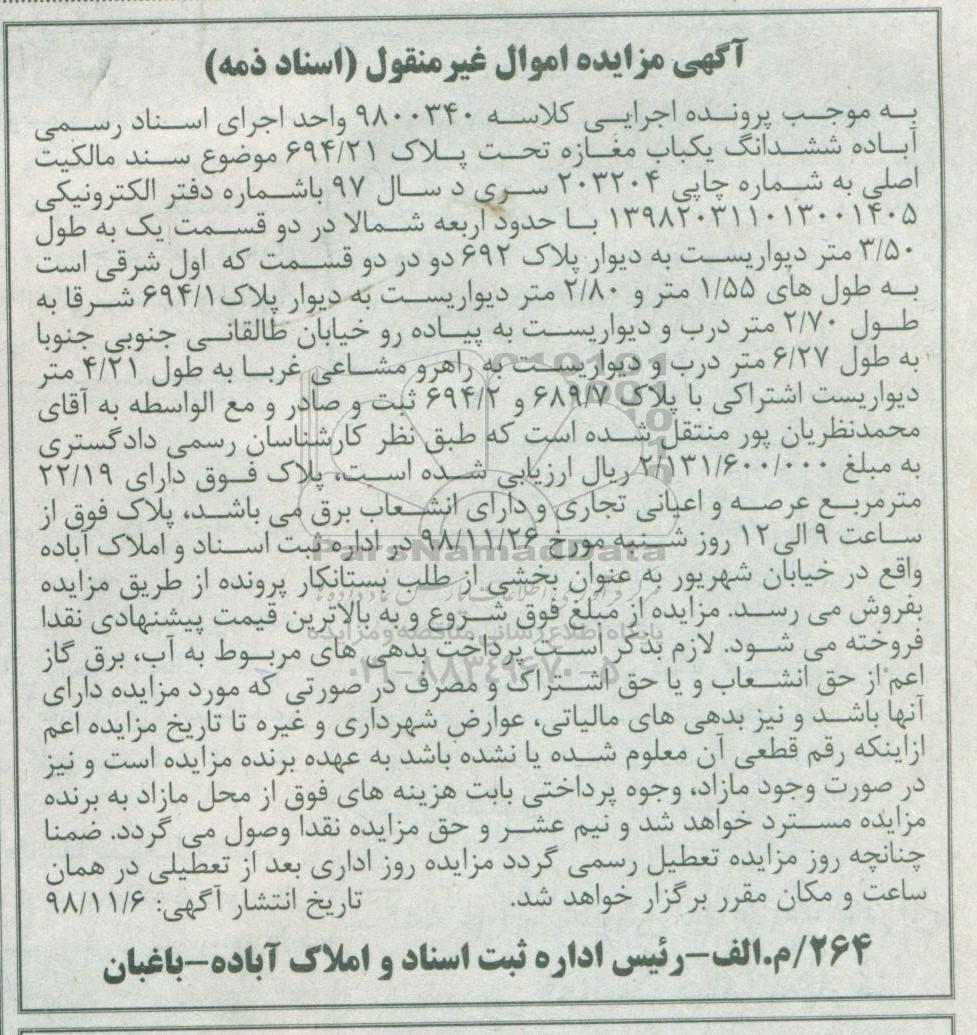 آگهی مزایده اموال غیرمنقول (اسناد ذمه)
به موجب پرونده اجرایی کلاسه ۹۸۰۰۳۴۰ واحد اجرای اسناد رسمی
آباده ششدانگ یکباب مغازه تحت پلاک ۶۹۴/۲۱ موضوع سند مالکیت
اصلی به شماره چاپی ۲۰۳۲۰۴ سری د سال ۹۷ باشماره دفتر الکترونیکی
۱۳۹۸۲۰۳۱۱۰۱۳۰۰۱۴۰۵ با حدود اربعه شمالا در دو قسمت یک به طول
۳/۵۰ متر دیواریست به دیوار پلاک ۶۹۲ دو در دو قسمت که اول شرقی است
به طول های ۱/۵۵ متر و ۲/۸۰ متر دیواریست به دیوار پلاک ۶۹۴/۱ شرقا به
طول ۲/۷۰ متر درب و دیواریست به پیاده رو خیابان طالقانی جنوبی جنوبا
به طول ۶/۲۷ متر درب و دیواریست به راهرو مشاعی غربا به طول ۴/۲۱ متر
دیواریست اشتراکی با پلاک ۶۸۹/۷ و ۶۹۴/۲ ثبت و صادر و مع الواسطه به آقای
محمدنظریان پور منتقل شده است که طبق نظر کارشناسان رسمی دادگستری
به مبلغ ۲/۱۳۱/۶۰۰/۰۰۰ ریال ارزیابی شده است، پلاک فوق دارای ۲۲/۱۹
مترمربع عرصه و اعیانی تجاری و دارای انشعاب برق می باشد، پلاک فوق از
ساعت ۹ الی ۱۲ روز شنبه مورخ ۹۸/۱۱/۲۶ در اداره ثبت اسناد و املاک آباده
واقع در خیابان شهریور به عنوان بخشی از طلب بستانکار پرونده از طریق مزایده
بفروش می رسد. مزایده از مبلغ فوق شروع و به بالاترین قیمت پیشنهادی نقدا
فروخته می شود. لازم بذکر است پرداخت بدهی های مربوط به آب، برق گاز
اعم از حق انشعاب و یا حق اشتراک و مصرف در صورتی که مورد مزایده دارای
آنها باشد و نیز بدهی های مالیاتی، عوارض شهرداری و غیره تا تاریخ مزایده اعم
ازاینکه رقم قطعی آن معلوم شده یا نشده باشد به عهده برنده مزایده است و نیز
در صورت وجود مازاد، وجوه پرداختی بابت هزینه های فوق از محل مازاد به برنده
مزایده مسترد خواهد شد و نیم عشر و حق مزایده نقدا وصول می گردد. ضمنا
چنانچه روز مزایده تعطیل رسمی گردد مزایده روز اداری بعد از تعطیلی در همان
ساعت و مکان مقرر برگزار خواهد شد. تاریخ انتشار آگهی: ۹۸/۱۱/۶
۲۶۴/م.الف-رئیس اداره ثبت اسناد و املاک آباده-باغبان
ParsNamadData
پایگاه اطلاع رسانی مناقصه و مزایده
۰۲۱-۸۸۳۴۹۶۷۰-۵